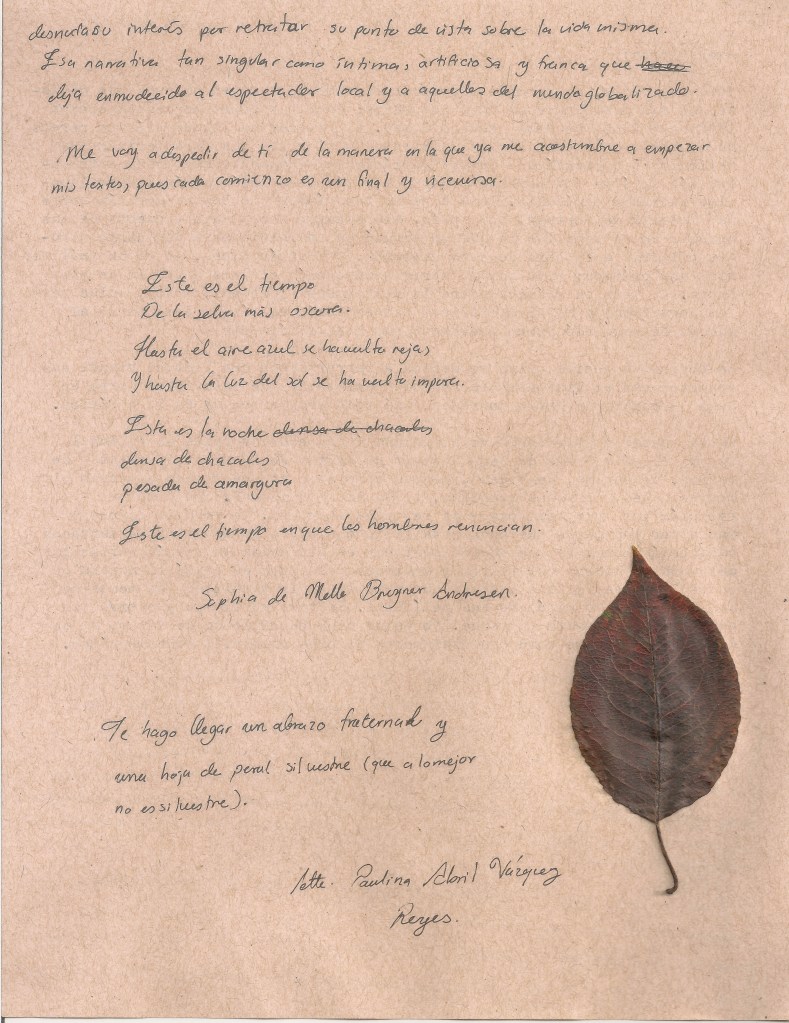 desnuda su interés por retratar su punto de vista sobre la vida misma.
Esa narrativa tan singular como íntima, artificiosa y franca que hace
deja enmudecido al espectador local y a aquellos del mundo globalizado.
Me voy a despedir de tí de la manera en la que ya me acostumbre a empezar
mis textos, pues cada comienzo es un final y viceversa.
Este es el tiempo
De la selva más oscura.
Hasta el aire azul se ha vuelto rejas
Y hasta la luz del sol se ha vuelto impura.
Esta es la noche densa de chacales
densa de chacales
pesada de amargura
Este es el tiempo en que los hombres renuncian.
Sophia de Mello Breyner Andresen.
Te hago llegar un abrazo fraternal y
una hoja de peral silvestre (que a lo mejor
no es silvestre).
Atte. Paulina Abril Vázquez
Reyes.